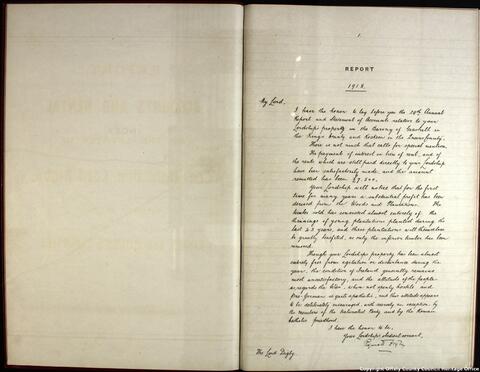 1.
REPORT
1918.
My Lord,
I have the honor to lay before you the 28th Annual
Report and Statement of Accounts relative to your
Lordship's property in the Barony of Geashill in
the King's County and
There is not much that calls for special mention.
The payment of interest in lieu of rent, and of
the rents which are still paid directly to your Lordship
have been satisfactorily made, and the amount
remitted has been £7,500.
Your Lordship will notice that for the first
time for many years a substantial profit has been
derived from the Woods and Plantations. The
timber sold has consisted almost entirely of the
thinnings of young plantations planted during the
last 25 years, and these plantations will themselves
be greatly benefited, as only the inferior timber has been
removed.
Though your Lordship's property has been almost
entirely free from agitation or disturbance during the
year, the condition of Ireland generally remains
most unsatisfactory, and the attitude of the people
as regards the War, when not openly hostile and
Pro-German is quite apathetic, and this attitude appears
to be deliberately encouraged, with scarcely an exception, by
the members of the Nationalist Party and by the Roman
Catholic priesthood.
I have the honor to be,
Your Lordship's obedient servant,
Reginald Digby
The Lord Digby.
Copyright Offaly County Council Heritage Office